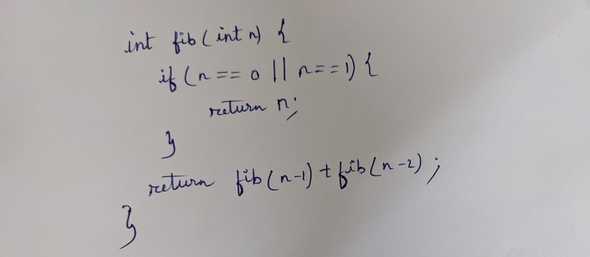 int fib(int n) {
if (n == 0 || n==1) {
return n;
}
return fib(n-1) + fib(n-2);
}